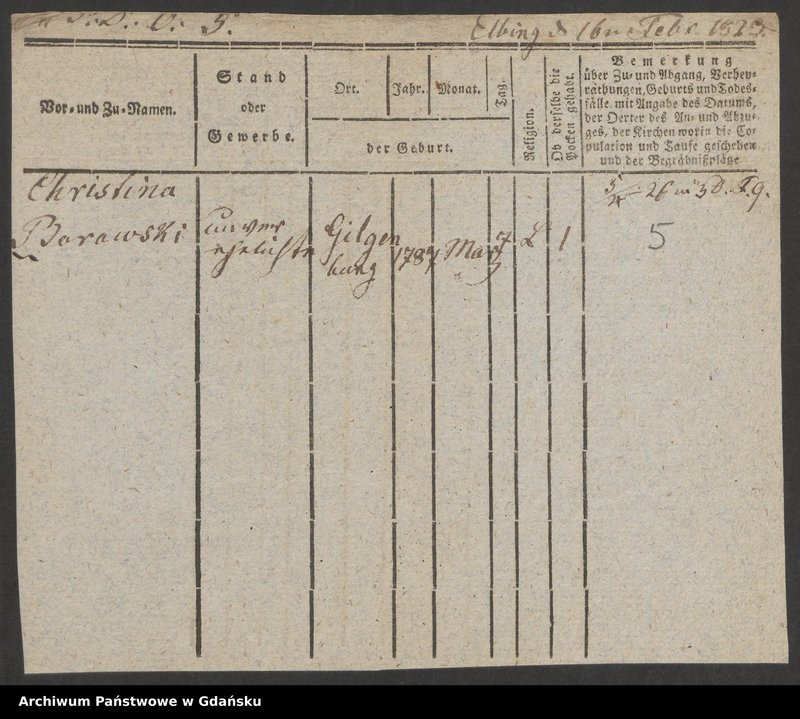 Elbing d 16n Febr. 1829.
Vor- und Zu-Namen.
Stand
oder
Gewerbe.
Ort.
Jahr.
Monat.
Tag.
der Geburt.
Religion.
Ob derselbe die
Pocken gehabt.
Bemerkung
über Zu- und Abgang, Verhey-
rathungen, Geburts und Todes-
fälle mit Angabe des Datums,
der Oerter des An- und Abzu-
ges, der Kirchen worin die Co-
pulation und Taufe geschehen
und der Begräbnißplätze
Christina
Borowski
unver
ehelichte
Gilgen
burg
1787
May
7
L
1
5
Archiwum Państwowe w Gdańsku